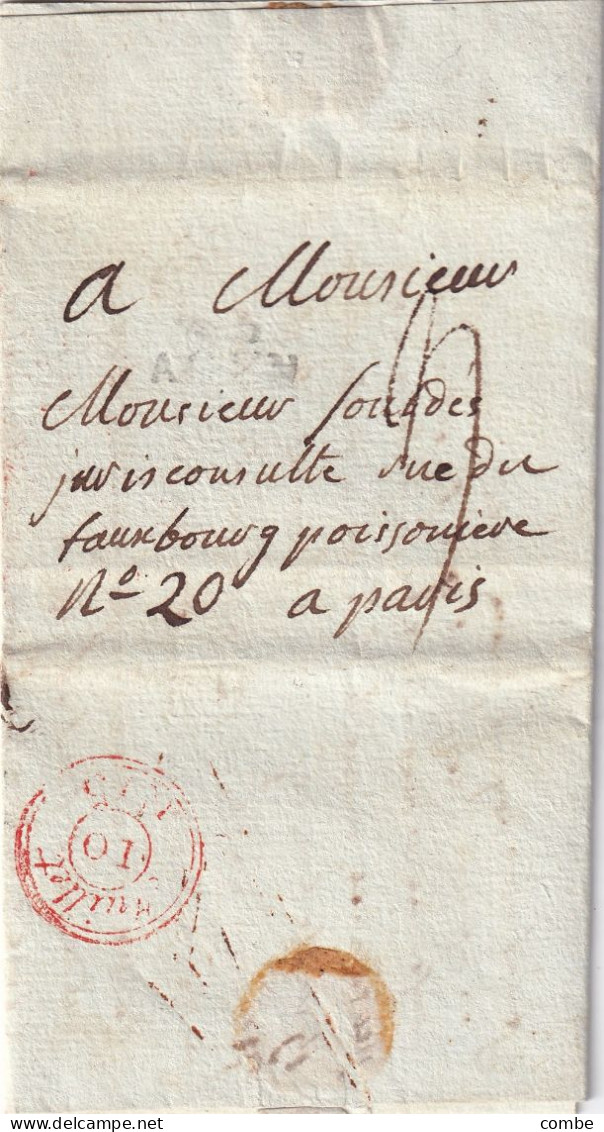 a Monsieur
Monsieur sourdés
jurisconsulte rue du
fauxbourg poissoniere
No 20 a paris
10
Juillet
combe
Delcampe.net